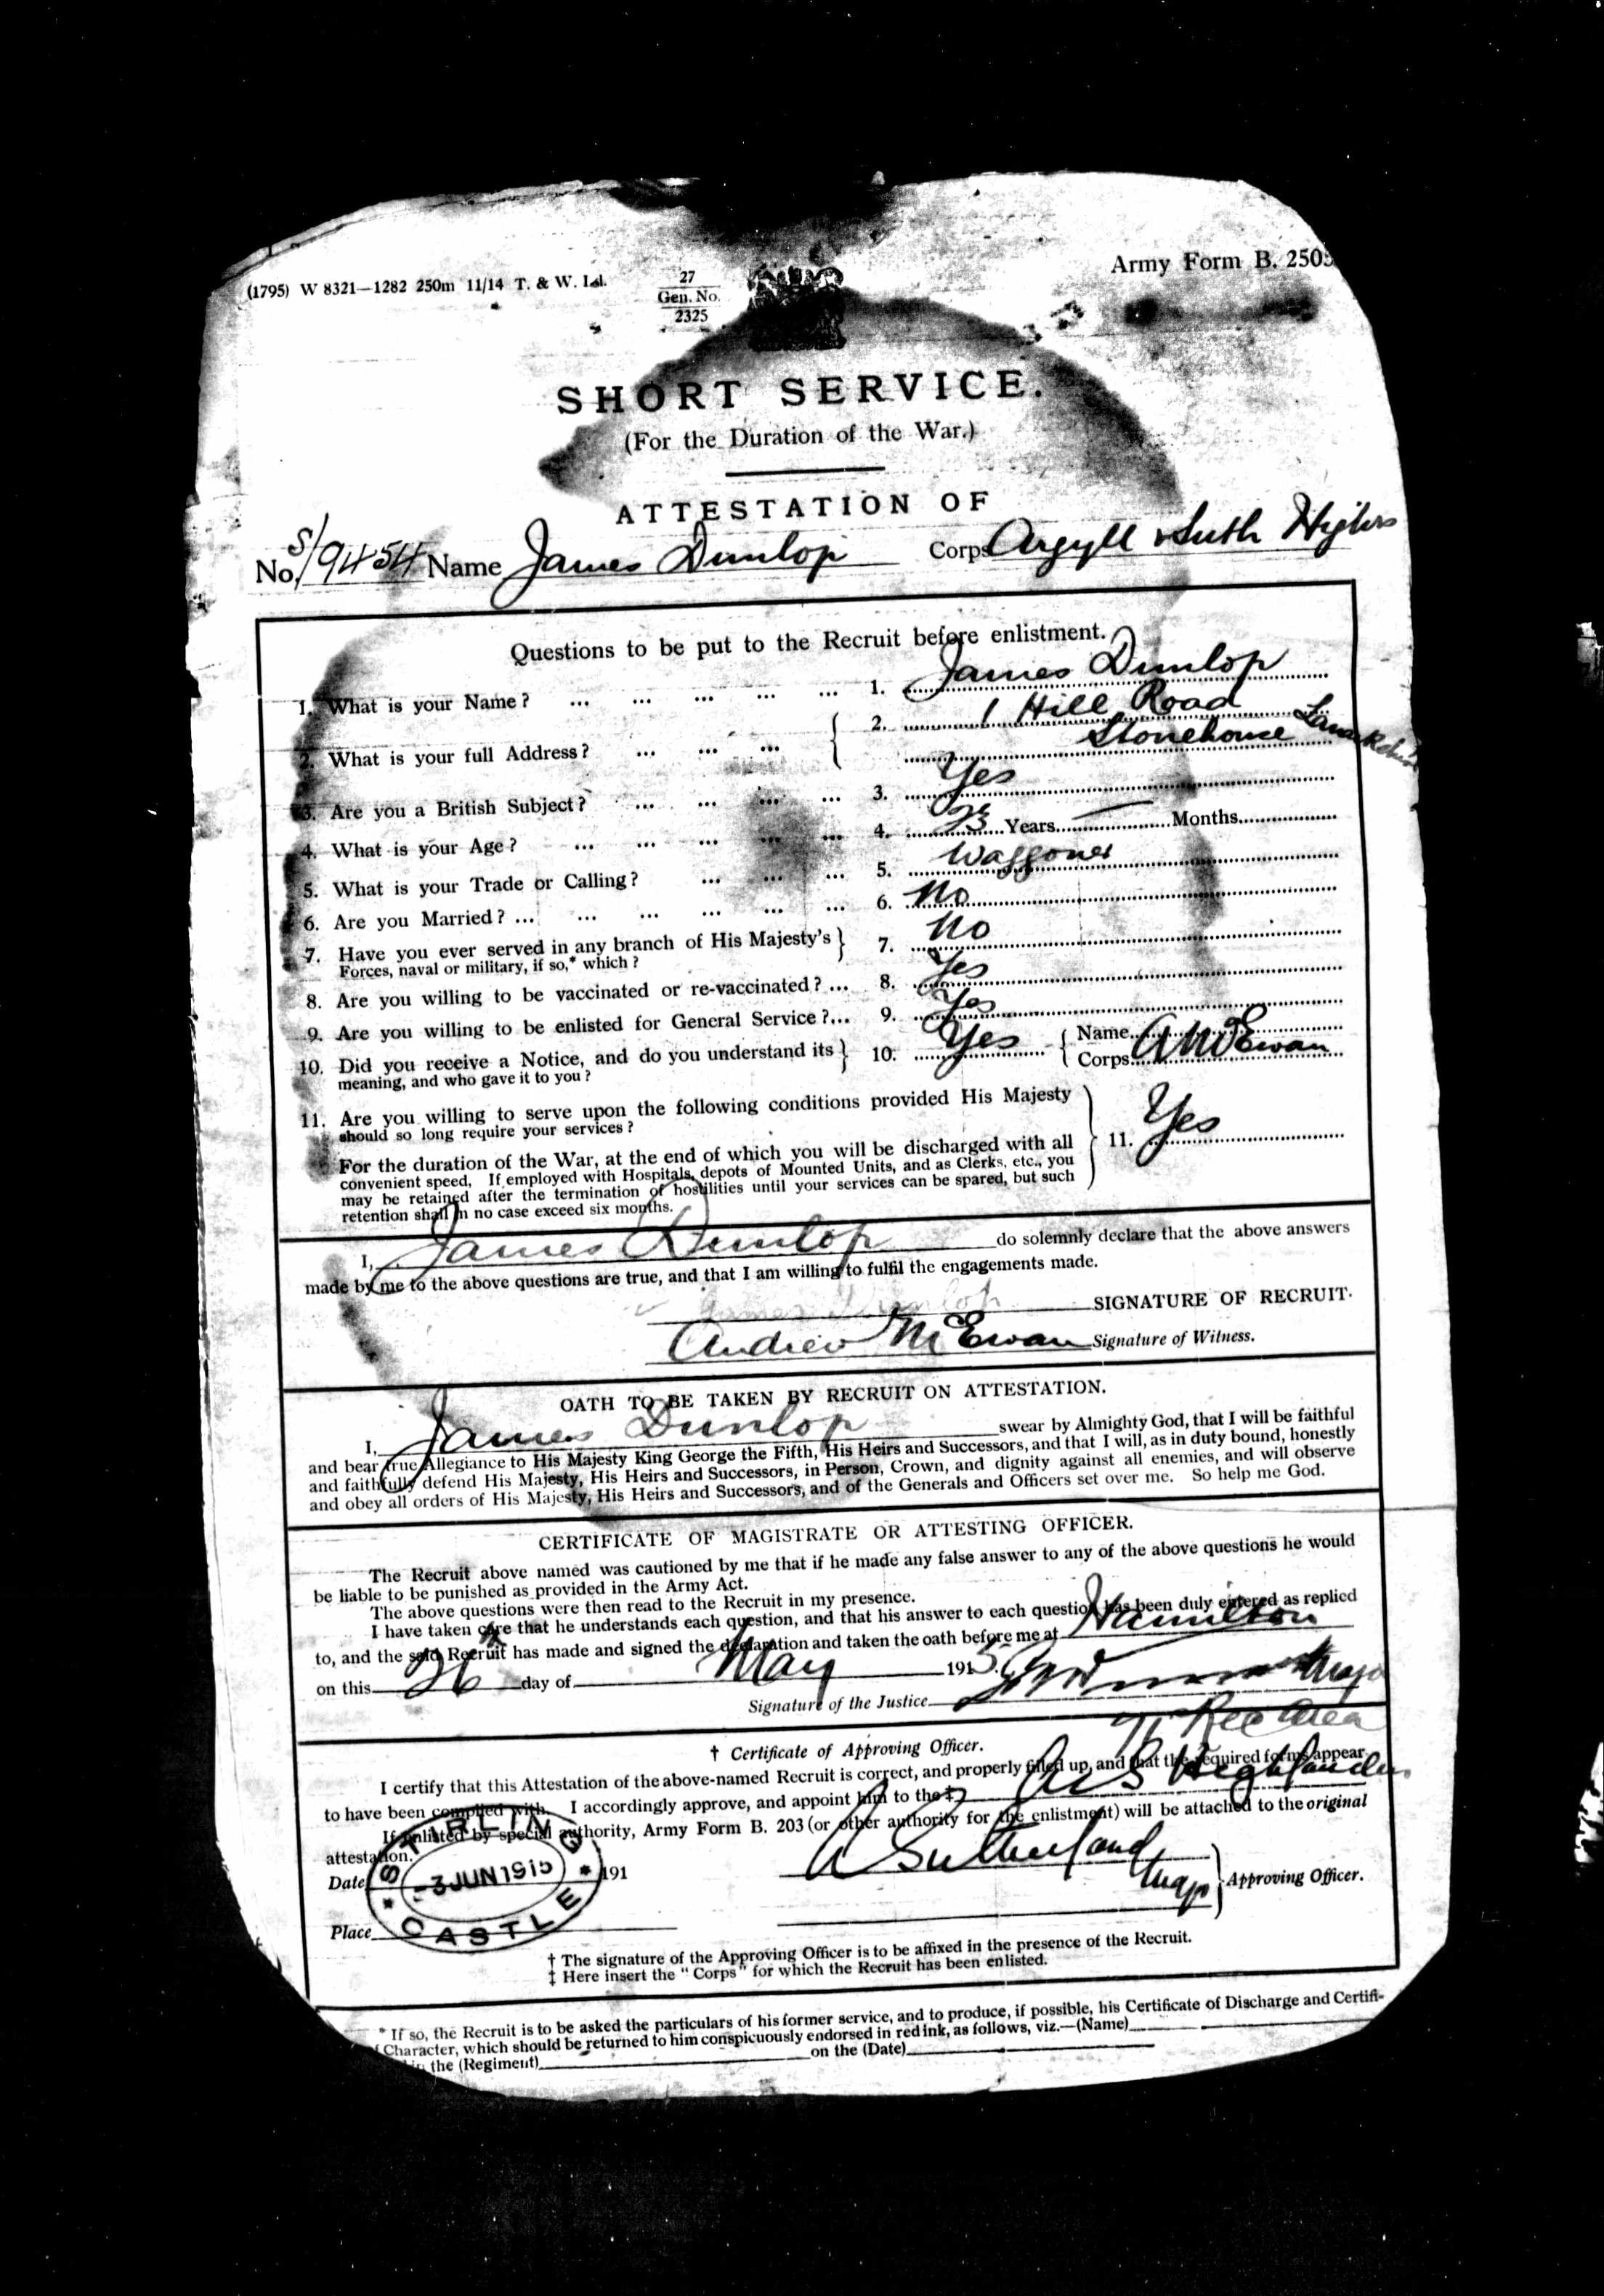 (1795) W 8321—1282 250m 11/14 T. & W. Ld. 27 Gen. No. 2325 Army Form B. 2505
SHORT SERVICE.
(For the Duration of the War.)
ATTESTATION OF
No. S/9454 Name James Dunlop Corps Argyll & Suth Highrs
Questions to be put to the Recruit before enlistment.
1. What is your Name? ... ... ... ... ... 1. James Dunlop
2. What is your full Address? ... ... ... 2. 1 Hill Road
Stonehouse Lanarkshire
3. Are you a British Subject? ... ... ... ... 3. Yes
4. What is your Age? ... ... ... ... ... 4. Years Months
5. What is your Trade or Calling? ... ... ... 5. Waggoner
6. Are you Married? ... ... ... ... ... ... 6. No
7. Have you ever served in any branch of His Majesty's } 7. No
Forces, naval or military, if so,* which?
8. Are you willing to be vaccinated or re-vaccinated? ... 8. Yes
9. Are you willing to be enlisted for General Service?... 9. Yes
10. Did you receive a Notice, and do you understand its } 10. Yes { Name A McEwan
meaning, and who gave it to you? Corps
11. Are you willing to serve upon the following conditions provided His Majesty
should so long require your services?
For the duration of the War, at the end of which you will be discharged with all 11. Yes
convenient speed. If employed with Hospitals, depots of Mounted Units, and as Clerks, etc., you
may be retained after the termination of hostilities until your services can be spared, but such
retention shall in no case exceed six months.
I, James Dunlop do solemnly declare that the above answers
made by me to the above questions are true, and that I am willing to fulfil the engagements made.
James Dunlop SIGNATURE OF RECRUIT.
Andrew McEwan Signature of Witness.
OATH TO BE TAKEN BY RECRUIT ON ATTESTATION.
I, James Dunlop swear by Almighty God, that I will be faithful
and bear true Allegiance to His Majesty King George the Fifth, His Heirs and Successors, and that I will, as in duty bound, honestly
and faithfully defend His Majesty, His Heirs and Successors, in Person, Crown, and dignity against all enemies, and will observe
and obey all orders of His Majesty, His Heirs and Successors, and of the Generals and Officers set over me. So help me God.
CERTIFICATE OF MAGISTRATE OR ATTESTING OFFICER.
The Recruit above named was cautioned by me that if he made any false answer to any of the above questions he would
be liable to be punished as provided in the Army Act.
The above questions were then read to the Recruit in my presence.
I have taken care that he understands each question, and that his answer to each question has been duly entered as replied
to, and the said Recruit has made and signed the declaration and taken the oath before me at Hamilton
on this 26 day of May 1915.
Signature of the Justice Major
Rec Area
† Certificate of Approving Officer.
I certify that this Attestation of the above-named Recruit is correct, and properly filled up, and that the required forms appear
to have been complied with. I accordingly approve, and appoint him to the ‡ A & S Highlanders
If enlisted by special authority, Army Form B. 203 (or other authority for the enlistment) will be attached to the original
attestation.
Date 191 A Sutherland
Major } Approving Officer.
Place
STIRLING
-3 JUN 1915
CASTLE
† The signature of the Approving Officer is to be affixed in the presence of the Recruit.
‡ Here insert the "Corps" for which the Recruit has been enlisted.
* If so, the Recruit is to be asked the particulars of his former service, and to produce, if possible, his Certificate of Discharge and Certifi-
Character, which should be returned to him conspicuously endorsed in red ink, as follows, viz.—(Name)
the (Regiment) on the (Date)